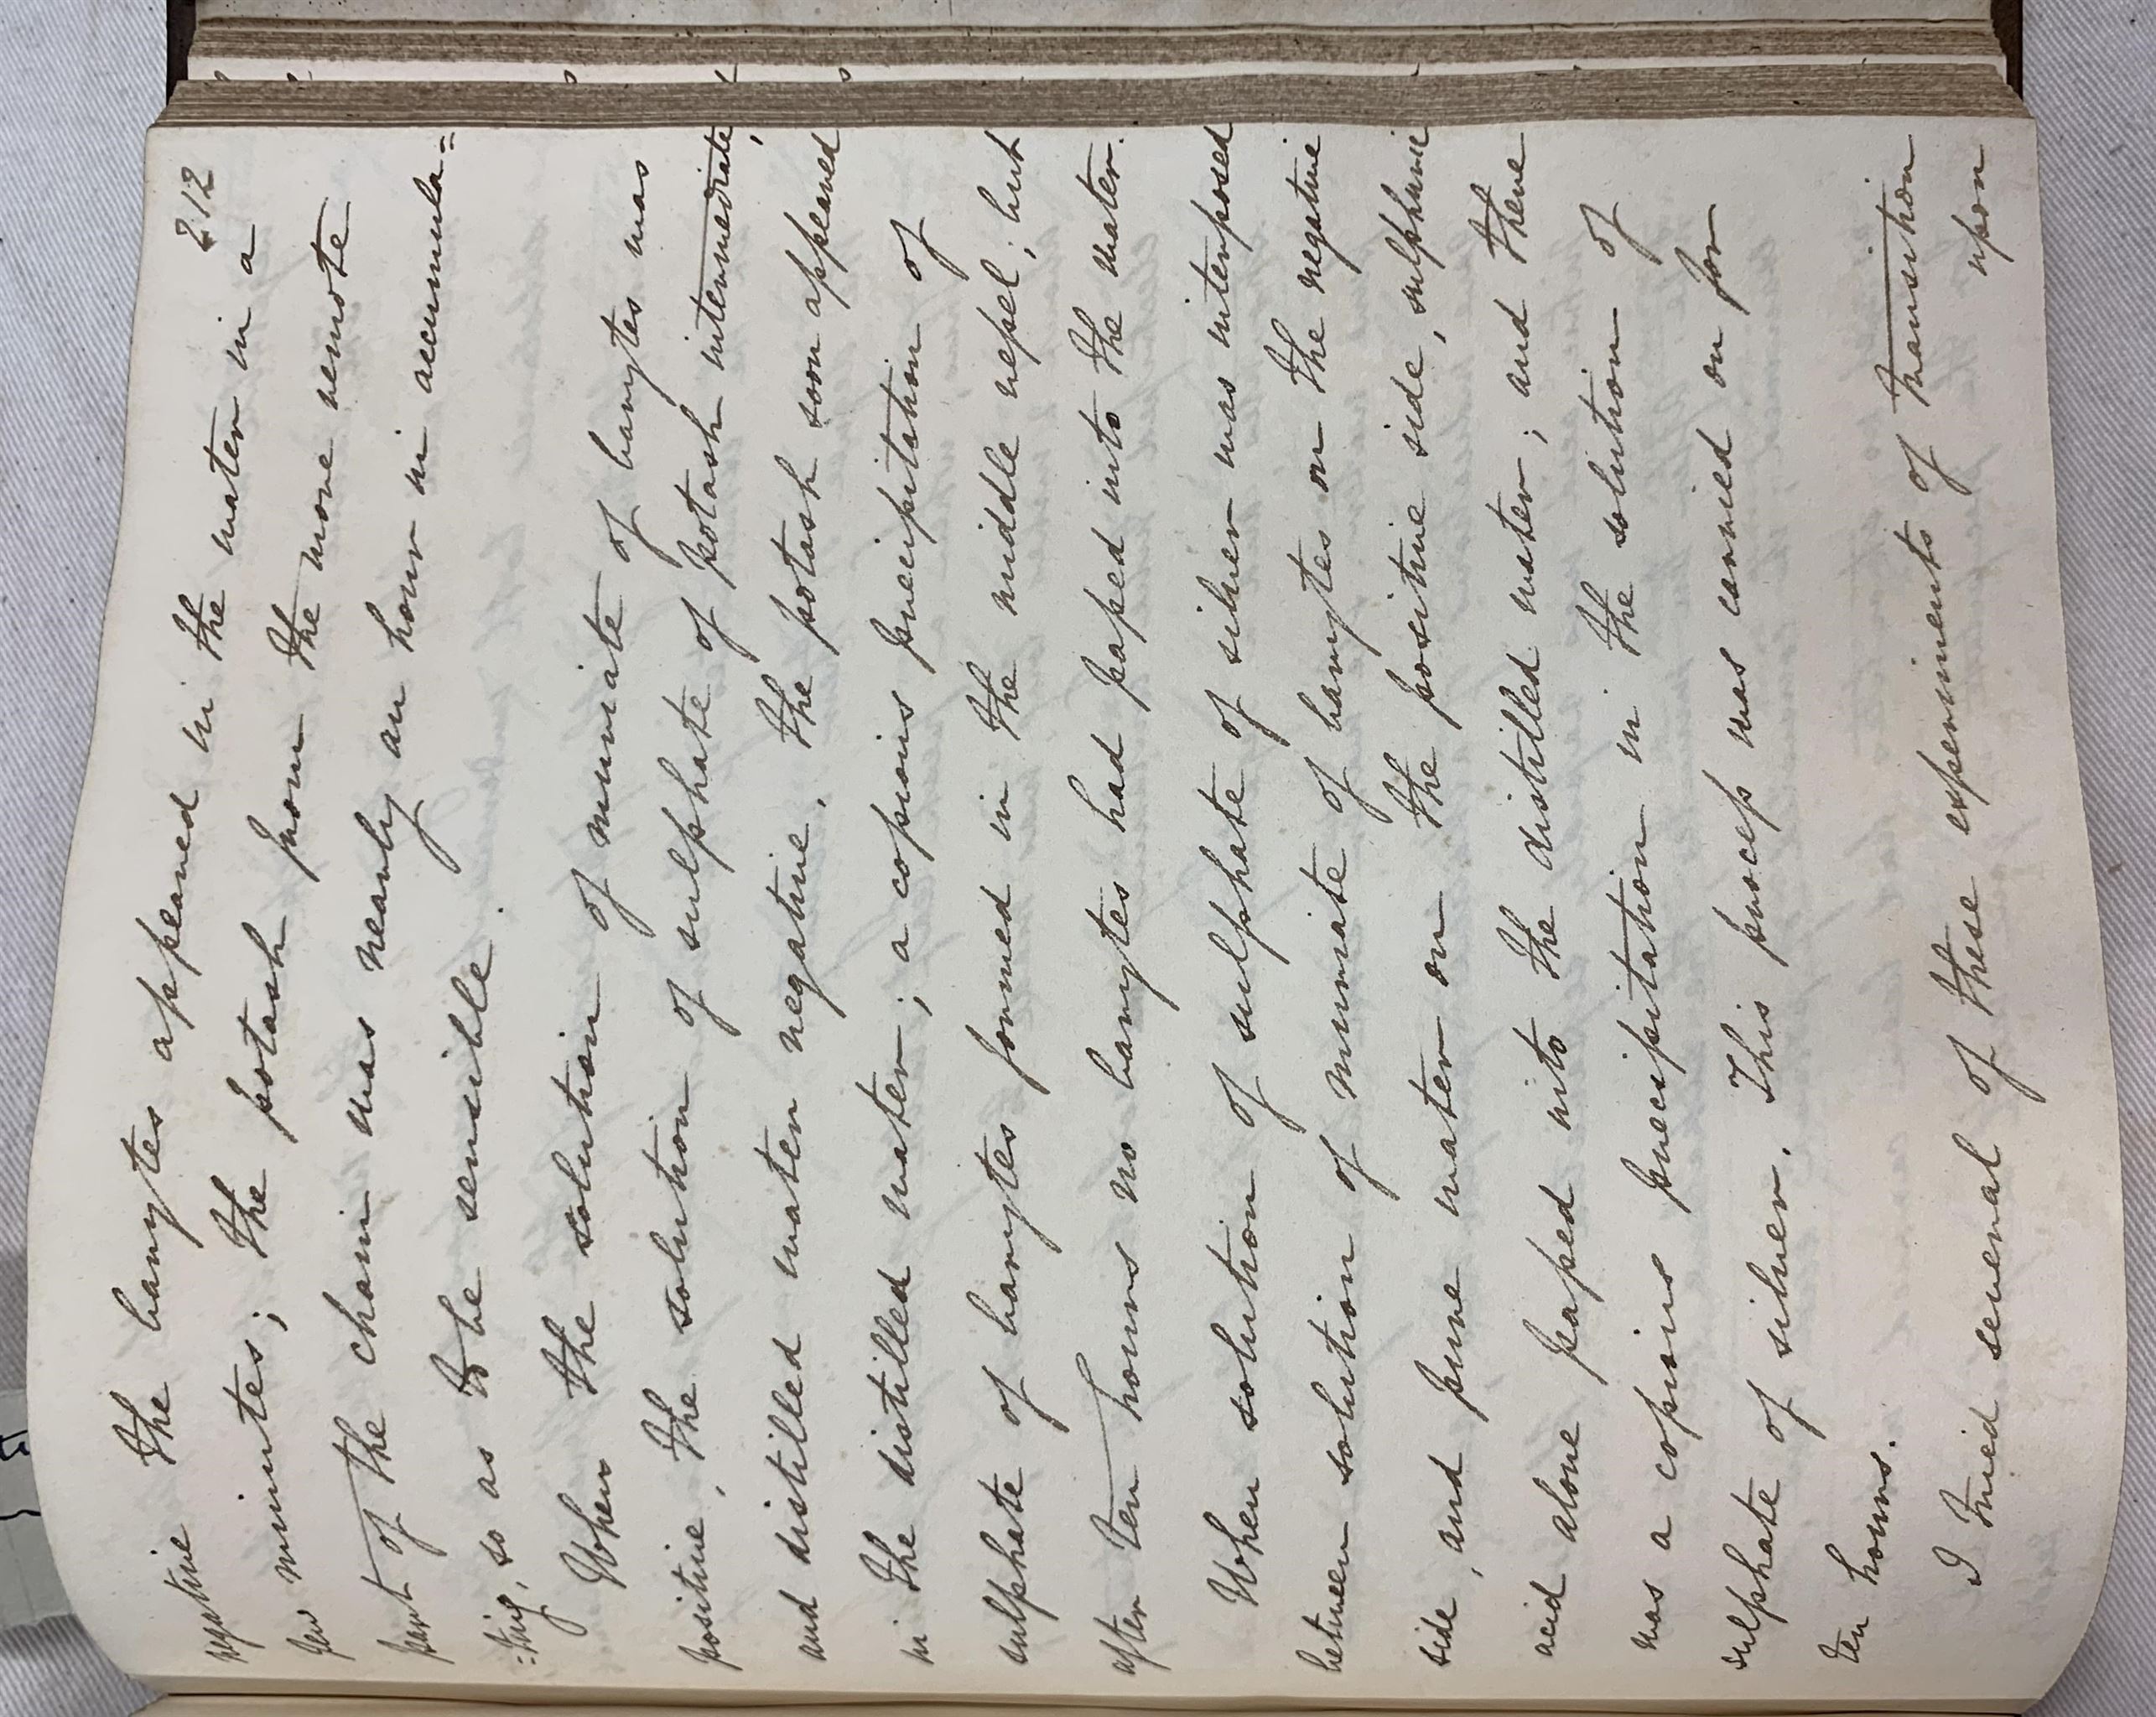 212
negative the barytes appeared in the water in a
few minutes; the potash from the more remote
part of the chain was nearly an hour in accumula=
=ting, so as to be sensible.
When the solution of muriate of barytes was
positive, the solution of sulphate of potash intermediate,
and distilled water negative, the potash soon appeared
in the distilled water; a copious precipitation of
sulphate of barytes formed in the middle vessel; but
after ten hours no barytes had passed into the water.
When solution of sulphate of silver was interposed
between solution of muriate of barytes on the negative
side, and pure water on the positive side, sulphuric
acid alone passed into the distilled water; and there
was a copious precipitation in the solution of
sulphate of silver. This process was carried on for
ten hours.
I tried several of these experiments of transition
upon